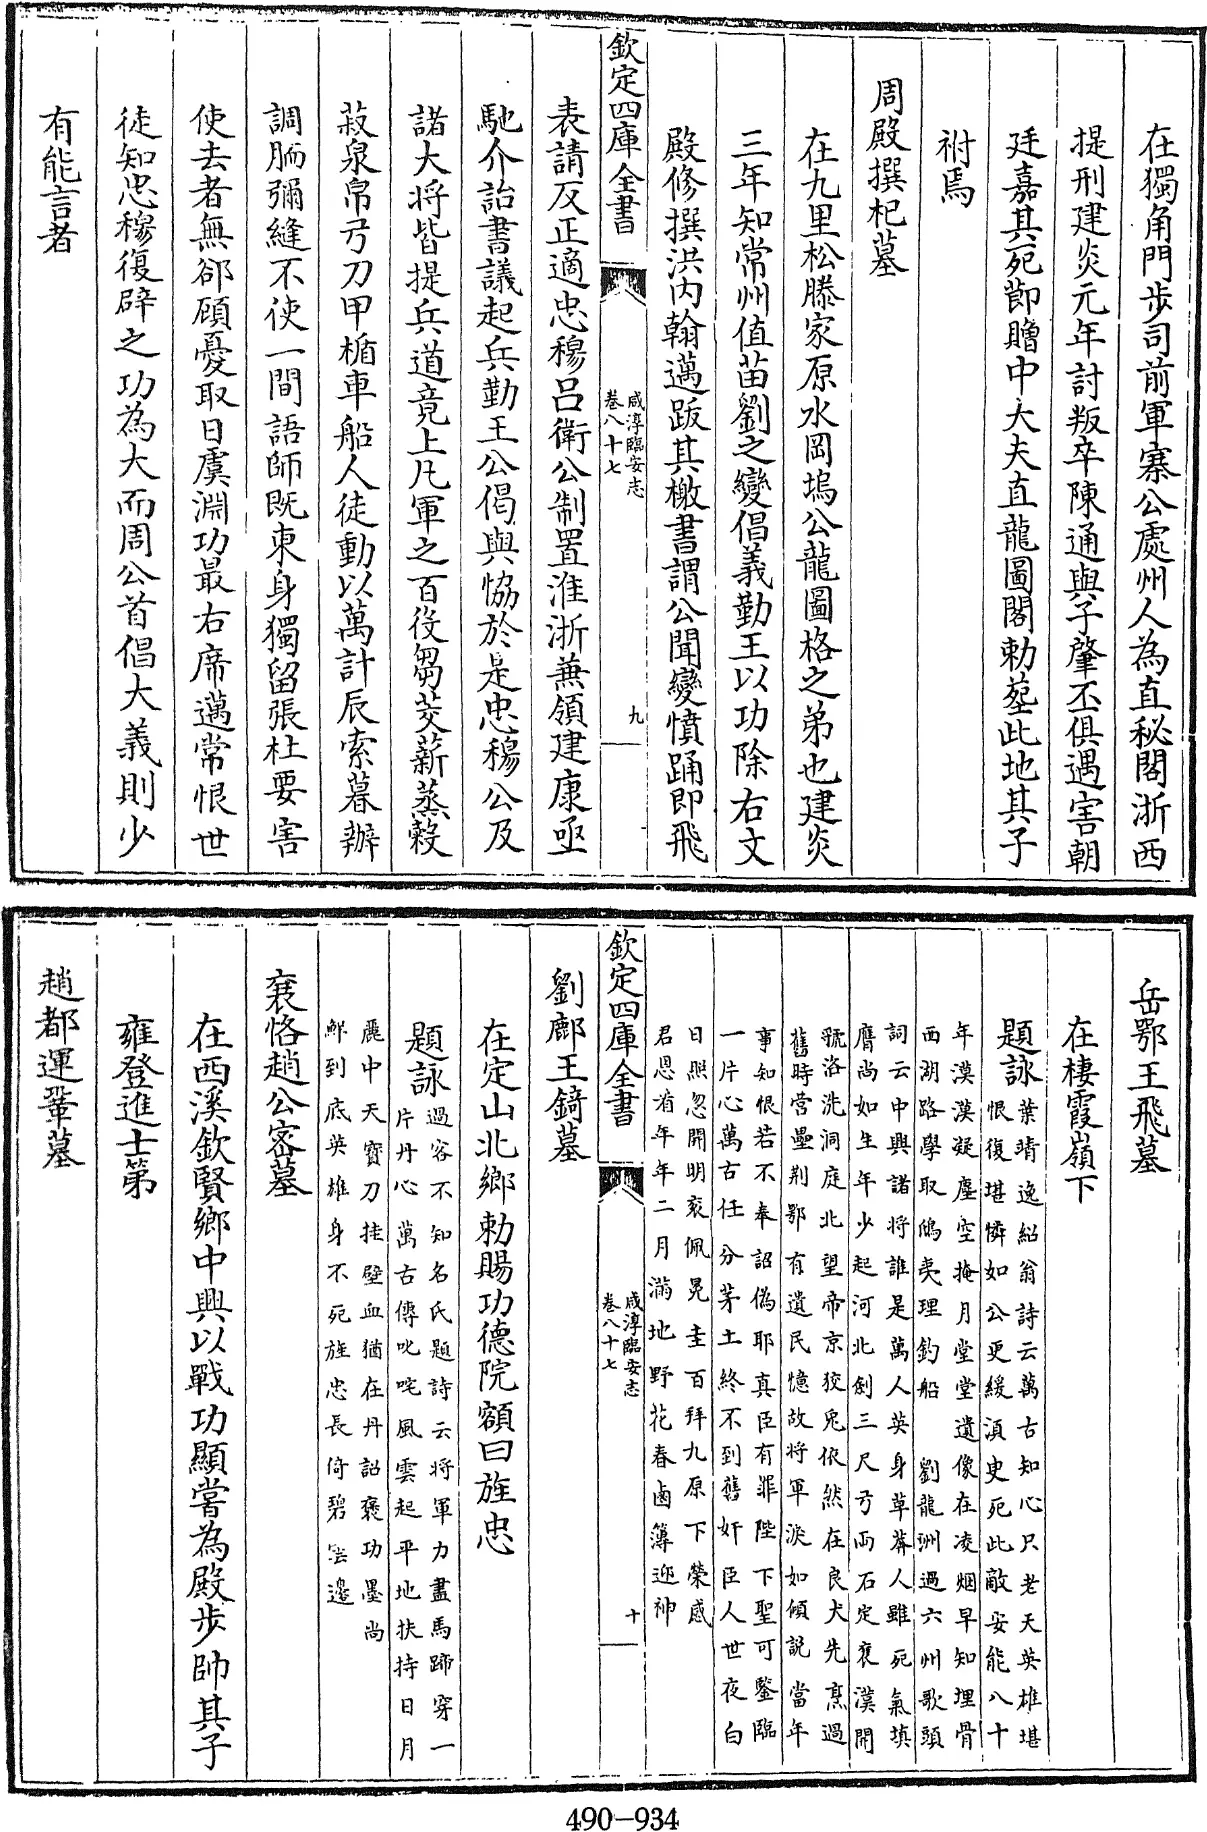 在獨角門步司前軍寨公處州人為直秘閣浙西
提刑建炎元年討叛卒陳通與子肇丕俱遇害朝
廷嘉其死節贈中大夫直龍圖閣勅塟此地其子
祔焉
周殿撰杞墓
在九里松滕家原水岡塢公龍圖格之弟也建炎
三年知常州值苗劉之變倡義勤王以功除右文
殿修撰洪内翰邁跋其檄書謂公聞變憤踊即飛
欽定四庫全書
咸淳臨安志
卷八十七
九
表請反正適忠穆呂衛公制置淮浙兼領建康亟
馳介詒書議起兵勤王公偈與恊於是忠穆公及
諸大将皆提兵道竟上凡軍之百役芻茭薪蒸榖
菽泉帛弓刀甲楯車船人徒動以萬計辰索暮辦
調胹彌縫不使一間語師既東身獨留張杜要害
使去者無郤顧憂取日虞淵功最右席邁常恨世
徒知忠穆復辟之功為大而周公首倡大義則少
有能言者
岳鄂王飛墓
在棲霞嶺下
題詠葉靖逸紹翁詩云萬古知心只老天英雄堪
恨復堪憐如公更緩湏史死此敵安能八十
年漠漠凝塵空掩月堂堂遺像在凌烟早知埋骨
西湖路學取鴟夷理釣船 劉龍洲過六州歌頭
詞云中興諸将誰是萬人英身草莽人雖死氣填
膺尚如生年少起河北劍三尺弓兩石定襄漢開
虢洛洗洞庭北望帝京狡兎依然在良犬先烹過
舊時營壘荆鄂有遺民憶故将軍淚如傾説當年
事知恨若不奉詔偽耶真臣有罪陛下聖可鑒臨
一片心萬古任分茅土終不到舊奸臣人世夜白
日照忽開明衮佩冕圭百拜九原下榮感
君恩㸔年年二月滿地野花春鹵簿迎神
欽定四庫全書
咸淳臨安志
卷八十七
十
劉鄜王錡墓
在定山北鄉勅賜功德院額曰旌忠
題詠過客不知名氏題詩云将軍力盡馬蹄穿一
片丹心萬古傳叱咤風雲起平地扶持日月
麗中天寳刀挂壁血猶在丹詔褒功墨尚
鮮到底英雄身不死旌忠長倚碧雲邊
襄恪趙公密墓
在西溪欽賢鄉中興以戰功顯嘗為殿步帥其子
雍登進士第
趙都運鞏墓
490-934